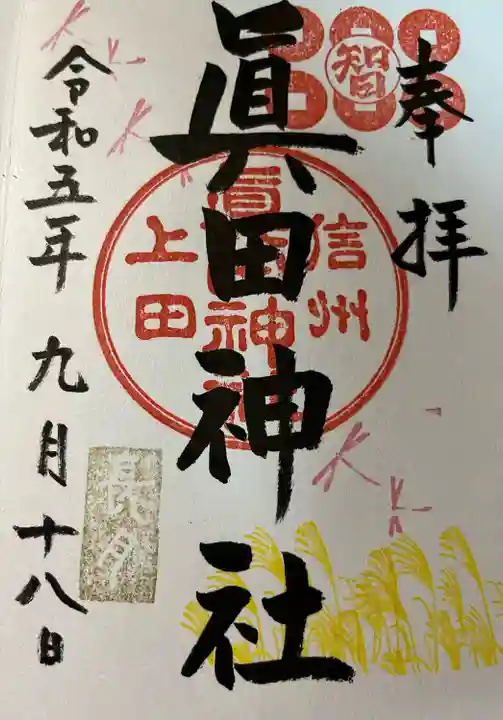 奉拝
智
眞田神社
信州
眞田神社
上田
令和五年九月十八日
長月